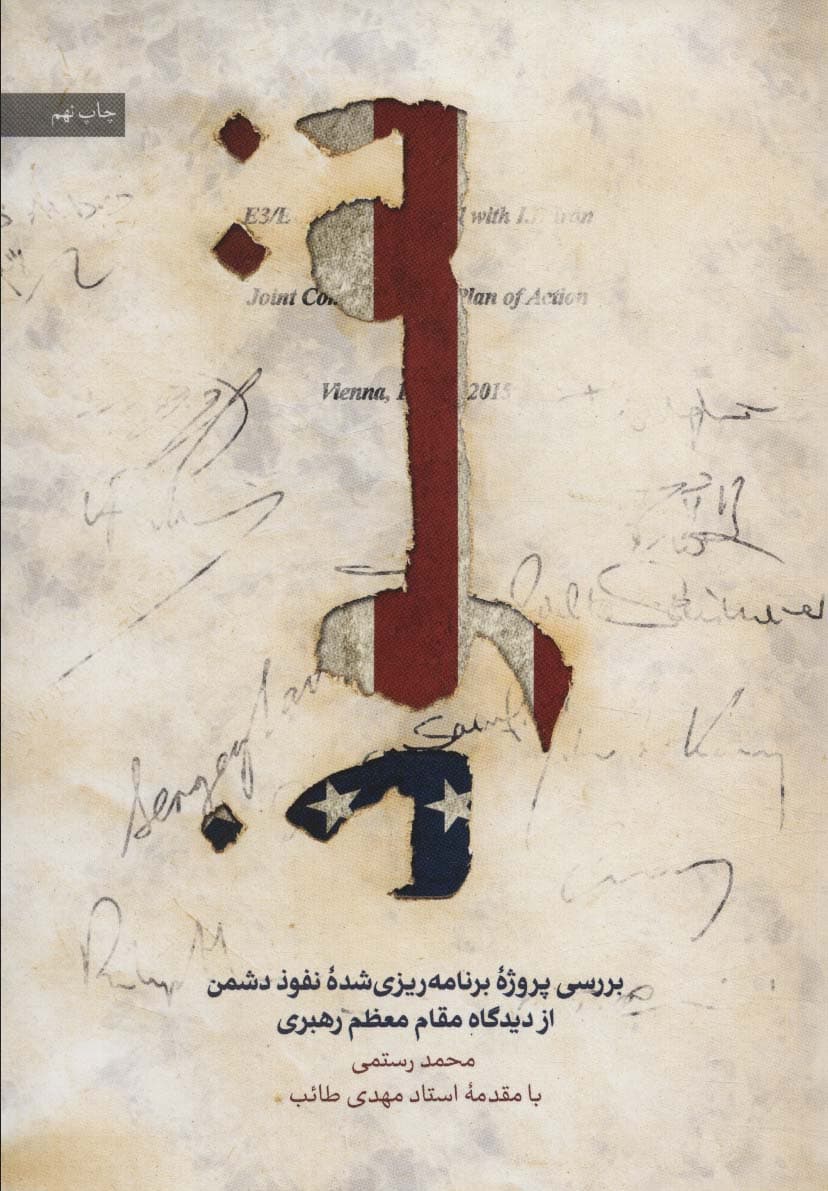 چاپ نهم
نفوذ
E3/E with I.R Iran
Joint Com Plan of Action
Vienna, 1 2015
Sergey Lav
بررسی پروژهٔ برنامه‌ریزی‌شدهٔ نفوذ دشمن
از دیدگاه مقام معظم رهبری
محمد رستمی
با مقدمهٔ استاد مهدی طائب